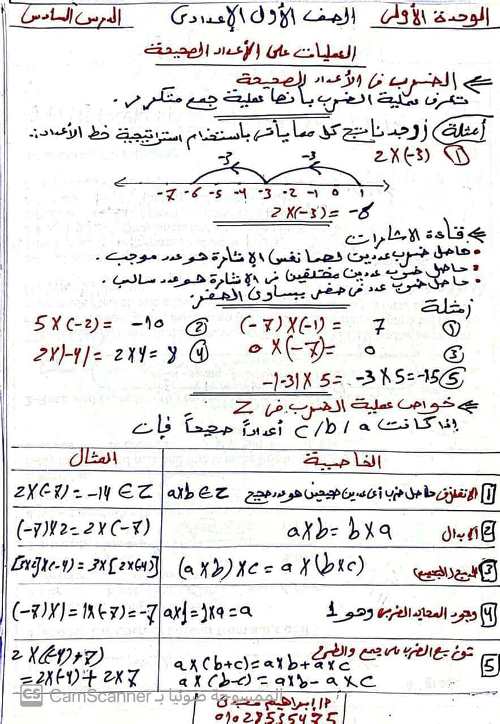 الوحدة الأولى الصف الأول الإعدادى الدرس السادس
العمليات على الأعداد الصحيحة
الضرب فى الأعداد الصحيحة
تعرف عملية الضرب بأنها عملية جمع متكرر.
أمثلة أوجد ناتج كل مما يأتى باستخدام استراتيجية خط الأعداد:
① 2×(-3)
-3 -3
-7 -6 -5 -4 -3 -2 -1 0 1
2×(-3) = -6
قاعدة الإشارات
• حاصل ضرب عددين لهما نفس الإشارة هو عدد موجب.
• حاصل ضرب عددين مختلفين فى الإشارة هو عدد سالب.
• حاصل ضرب عدد فى صفر يساوى الصفر.
أمثلة
① (-7)×(-1) = 7 ② 5×(-2) = -10
③ 0×(-7) = 0 ④ 2×|-4| = 2×4 = 8
⑤ -|-3|×5 = -3×5 = -15
خواص عملية الضرب فى Z
إذا كانت a / b / c أعداداً صحيحاً فإن
الخاصية المثال
1 الانغلاق حاصل ضرب أى عددين صحيحين هو عدد صحيح a×b∈Z 2×(-7) = -14 ∈ Z
2 الإبدال a×b = b×a (-7)×2 = 2×(-7)
3 (a×b)×c = a×(b×c) [3×2]×(-4) = 3×[2×(-4)]
4 وجود المحايد الضربى وهو 1 a×1=1×a=a (-7)×1=1×(-7)=-7
5 توزيع الضرب على جمع والطرح
a×(b+c)=a×b+a×c 2×((-4)+7)
a×(b-c)=a×b-a×c =2×(-4)+2×7
CS CamScanner الممسوحة ضوئيا بـ